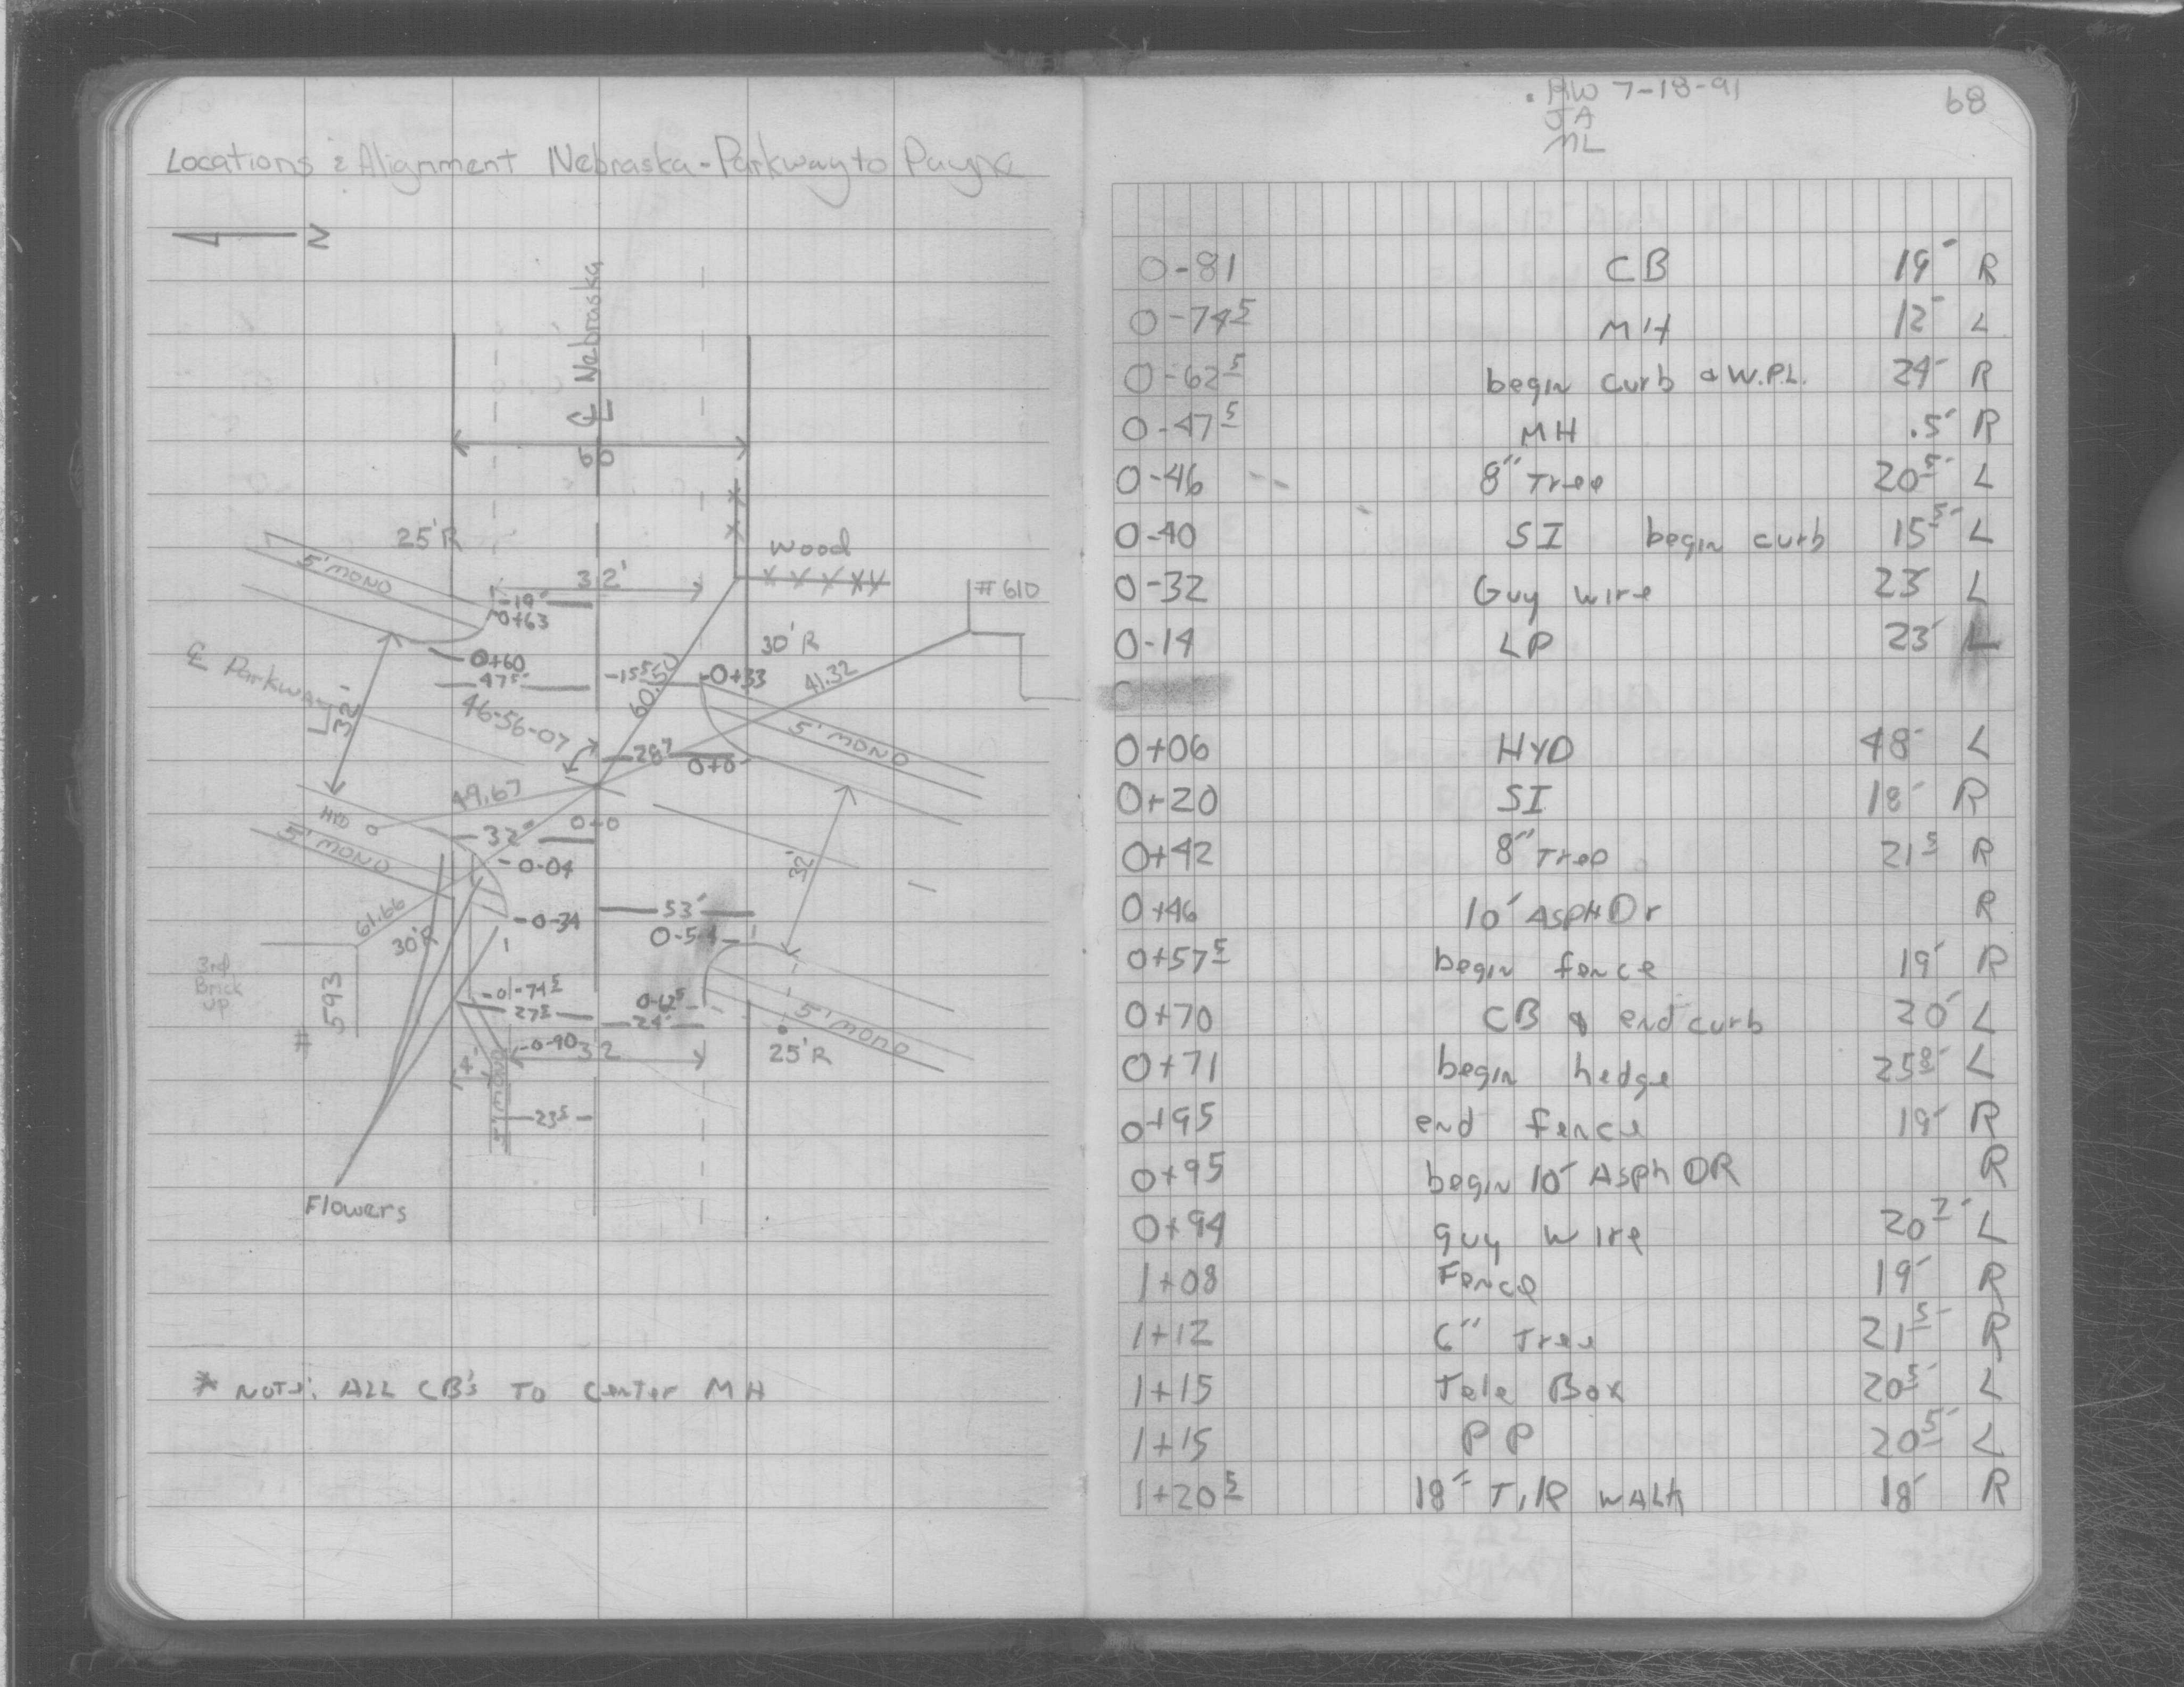 Locations & Alignment Nebraska-Parkway to Payne
N
℄ Nebraska
60
25'R
5' MONO
32'
Wood
-19'
0+63
#610
30'R
0+60
47⁵'
-15⁵'
0+33
41.32
60.50
℄ Parkway
32'
46-56-07
5' MONO
28⁷
0+0
49.67
HYD
32'
0+0
5' MONO
-0-04
32'
61.66
30'R
-0-34
53'
3rd
Brick
up
# 593
-0-74⁵
27⁵
0-62⁵
24'
5' MONO
-0-90
32
25'R
4'
5' MONO
23⁵
Flowers
* NOTE: ALL CB's TO Center MH
HW 7-18-91
JA
ML
68
0-81 CB 19' R
0-74⁵ MH 12' L
0-62⁵ begin curb & W.P.L. 24' R
0-47⁵ MH .5' R
0-46 8" Tree 20⁵' L
0-40 SI begin curb 15⁵' L
0-32 Guy wire 23' L
0-14 LP 23' L
0+06 HYD 48' L
0+20 SI 18' R
0+42 8" Tree 21⁵ R
0+46 10' ASPH Dr R
0+57⁵ begin fence 19' R
0+70 CB & end curb 20' L
0+71 begin hedge 25⁸' L
0+95 end fence 19' R
0+95 begin 10' Asph DR R
0+94 guy wire 20⁷' L
1+08 Fence 19' R
1+12 6" Tree 21⁵' R
1+15 Tele Box 20⁵' L
1+15 PP 20⁵' L
1+20⁵ 18" Tile WALK 18' R